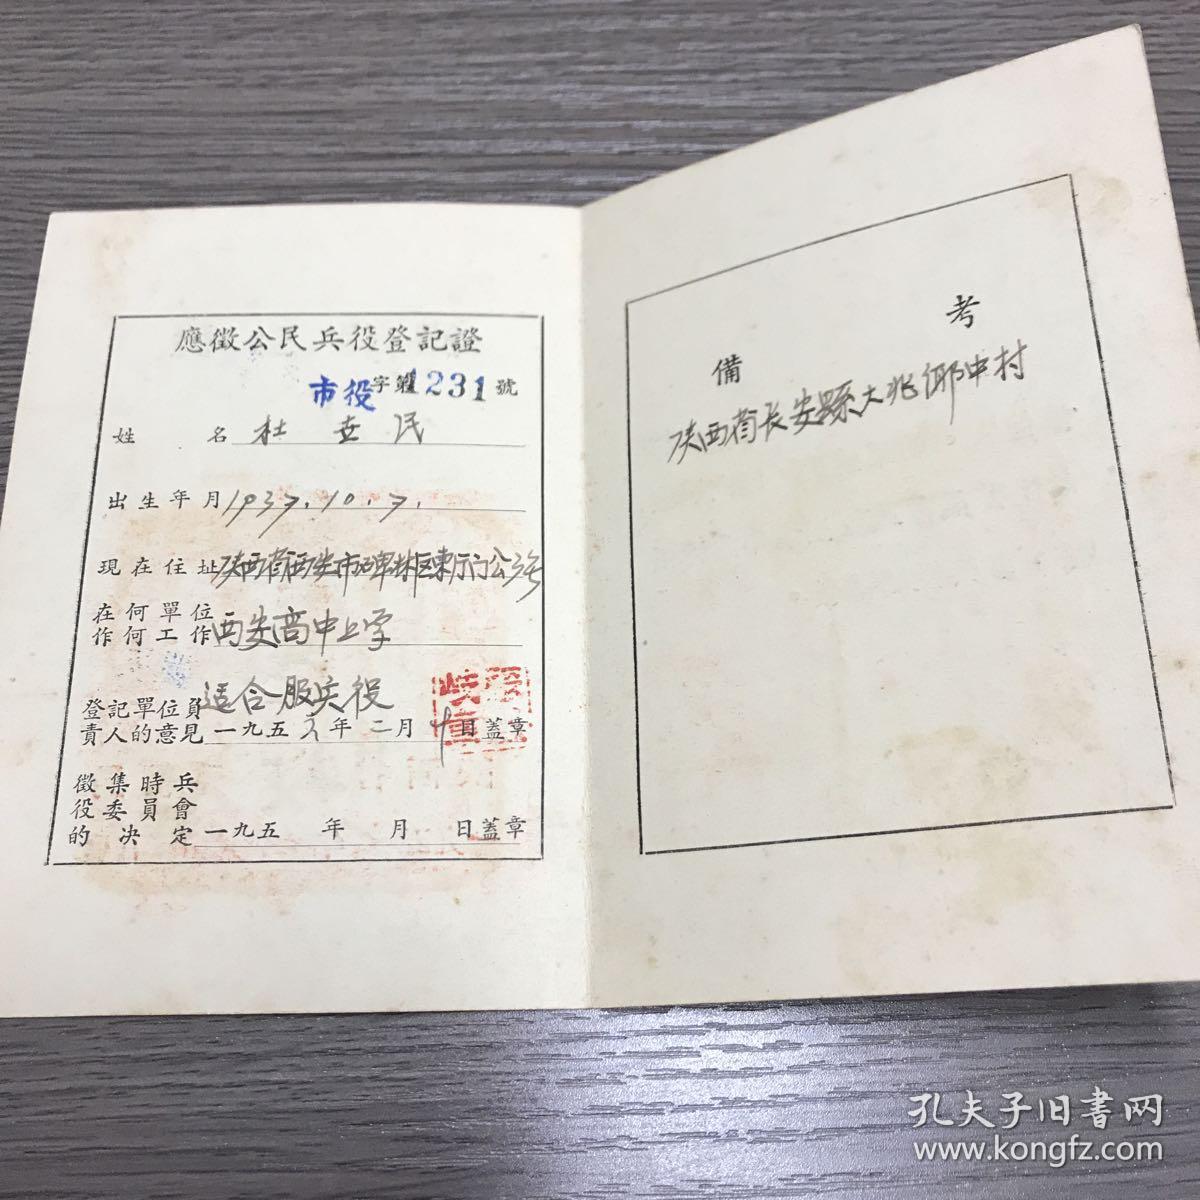 應徵公民兵役登記證
市役字第1231號
姓名 杜世民
出生年月 1937.10.7.
現在住址 陕西省西安市碑林区東厅门公3号
在何單位
作何工作 西安高中上学
适合服兵役
登記單位負
責人的意見 一九五六年二月十日蓋章
徵集時兵
役委員會
的决定 一九五 年 月 日蓋章
備考
陕西省長安縣大兆鄉中村
孔夫子旧书网
www.kongfz.com